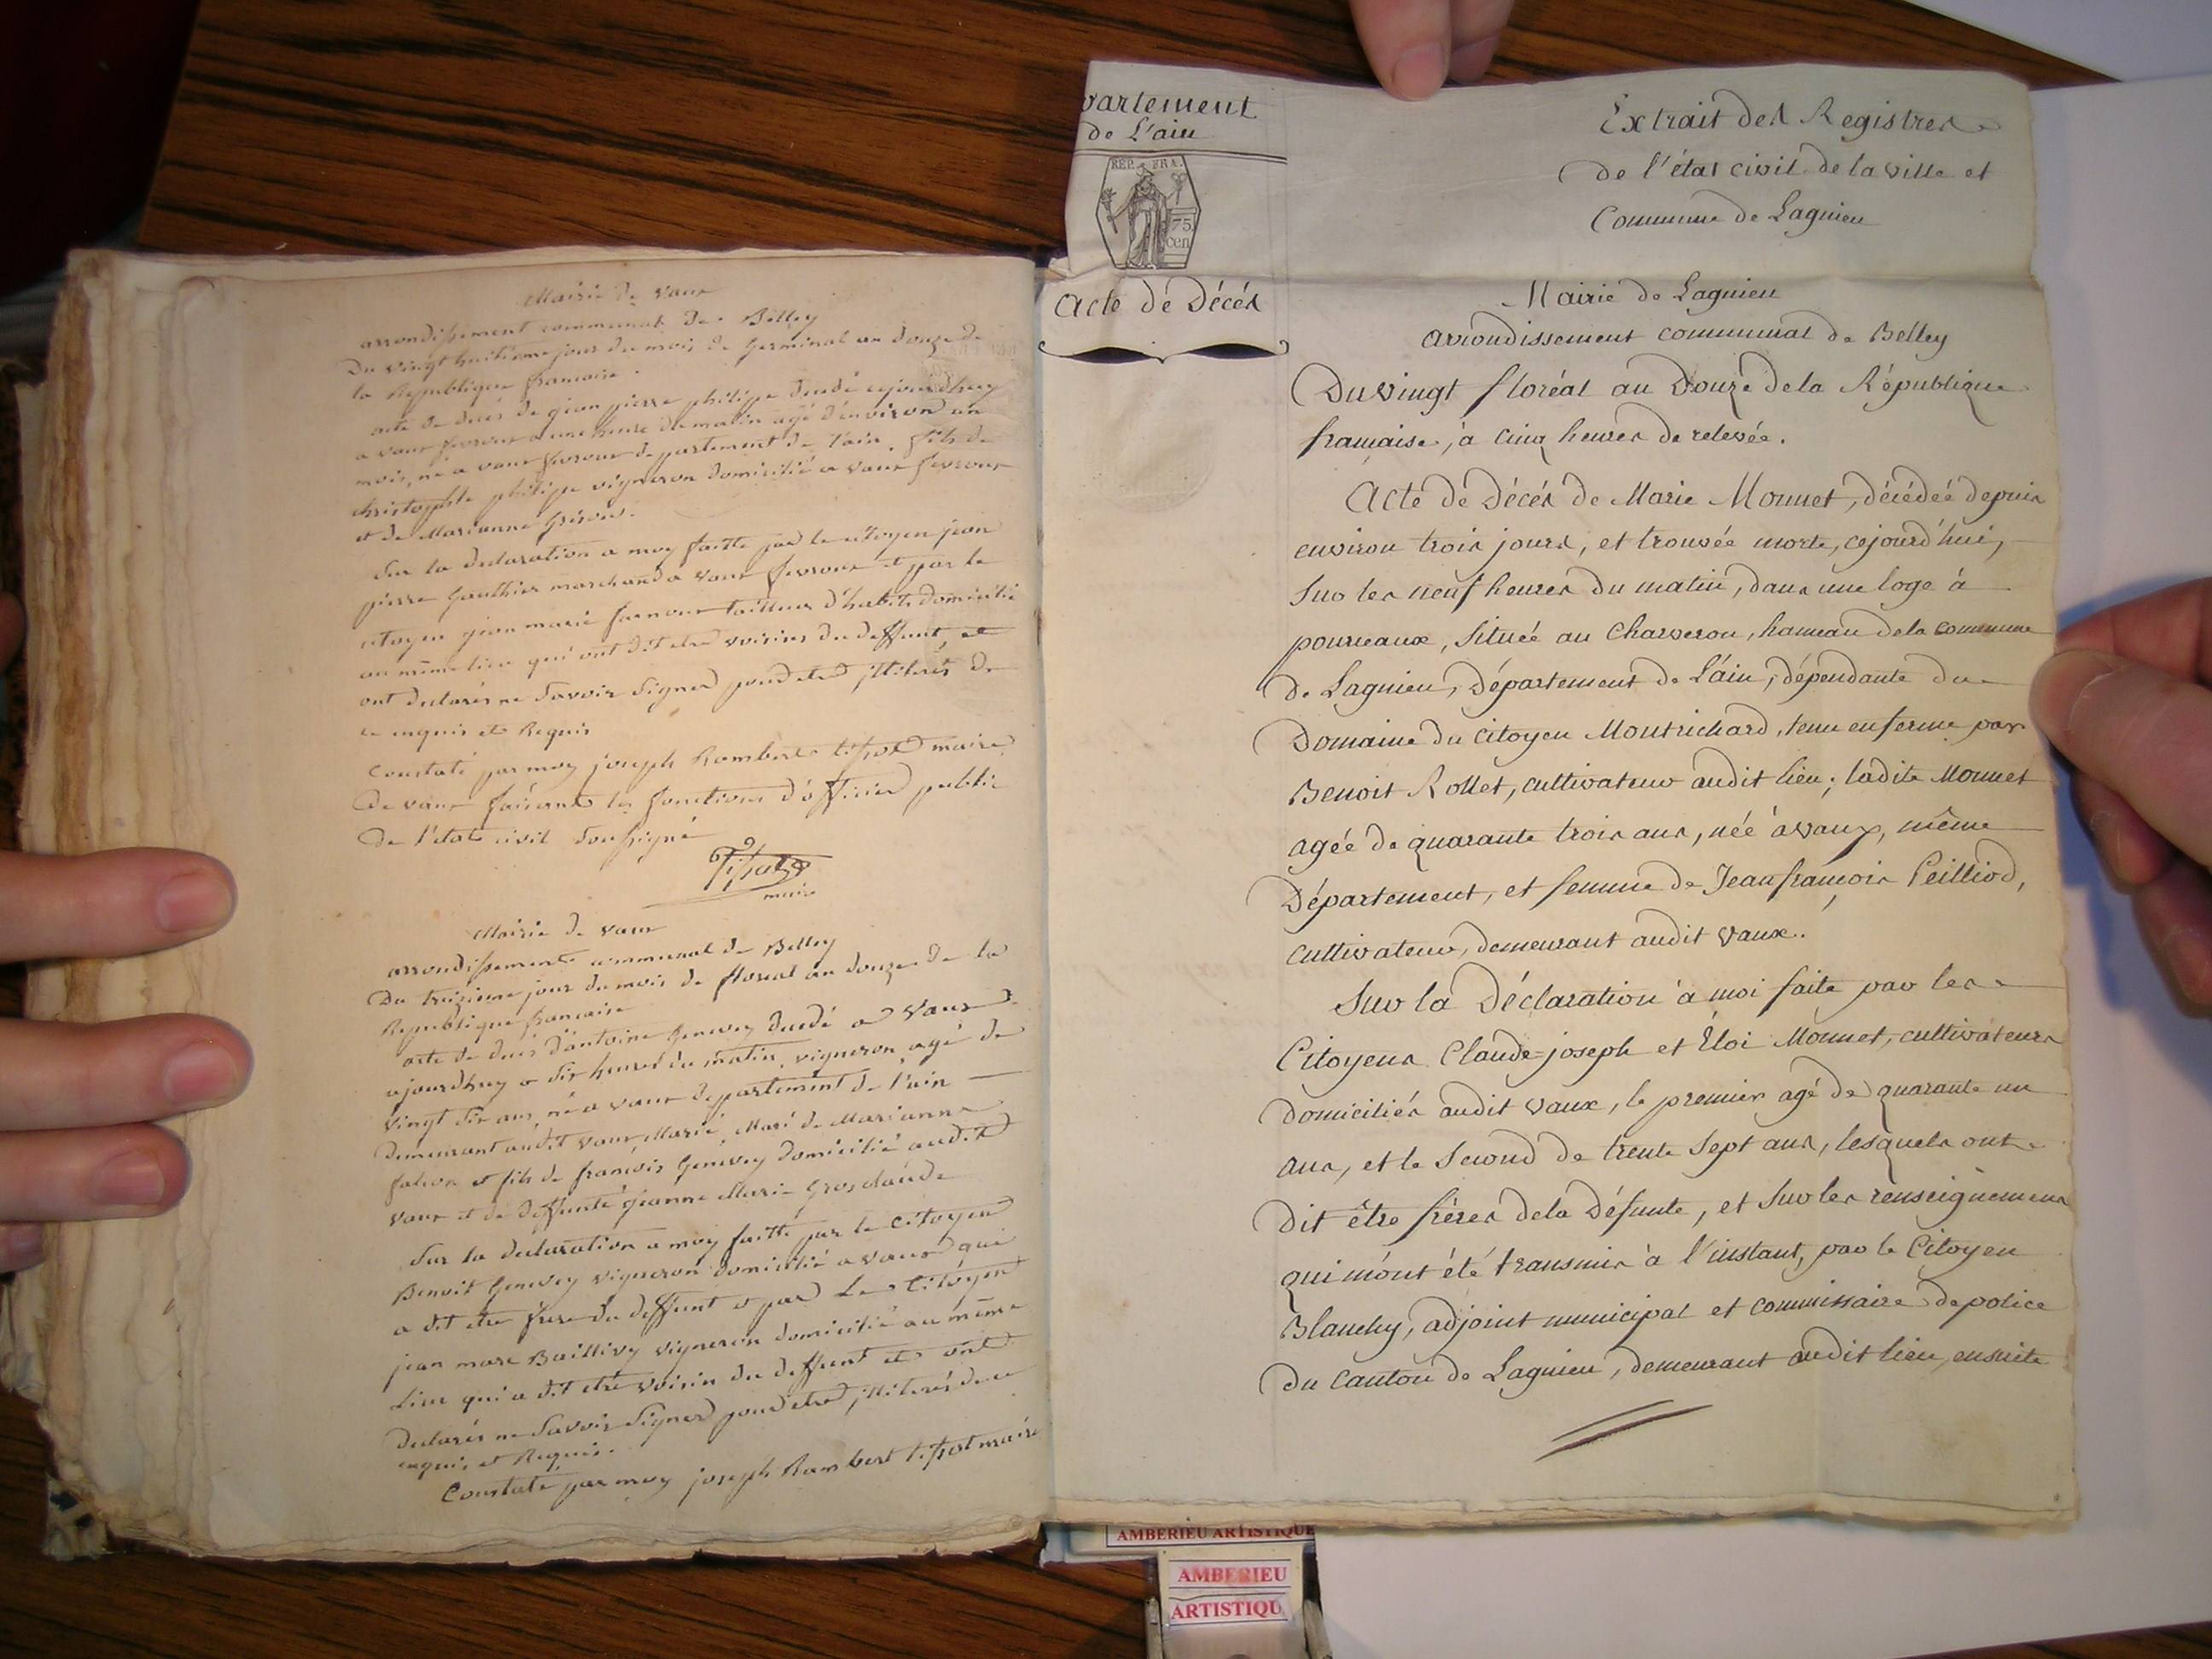 Mairie de vaux
arrondissement communal de Belley
Du vingt huitieme jour du mois de Germinal an douze de
la Republique francaise.
acte de deces de jean pierre philippe decedé cejourdhuy
a vaux fevroux a une heure du matin agé denviron un
mois, né a vaux fevroux departement de l'ain, fils de
christophle philippe vigneron domicilié a vaux fevroux
et de Marianne
Sur la declaration a moy faitte par le citoyen jean
pierre Gauthier marchand a vaux fevroux et par le
citoyen jean marie tailleur d'habits domicilié
au même lieu qui ont dit etre voisins du deffunt, et
ont declarés ne Savoir Signer pour etre jlliterés de
ce enquis et Requis
Constaté par moy joseph Rambert tissot maire
de vaux faisant les fonctions d'officier public
de l'etat civil Soussigné
Tissot
maire
Mairie de vaux
arrondissement communal de Belley
Du treizieme jour du mois de floreal an douze de la
Republique francaise
acte de deces d'antoine Genevey decedé a vaux
ajourdhuy a dix heures du matin, vigneron, agé de
vingt six ans, né a vaux departement de l'ain
demeurant audit vaux, Marié, Mari de Marianne
falion et fils de francois Genevey domicilié audit
vaux et de deffunte jeanne Marie Grosclaude
Sur la declaration a moy faitte par le citoyen
Benoit Genevey vigneron domicilié a vaux qui
a dit etre frere du deffunt et par Le Citoyen
jean marc Baillivy vigneron domicilié au même
Lieu qui a dit etre voisin du deffunt et ont
declarés ne Savoir Signer pour etre jlliterés de ce
enquis et Requis.
Constaté par moy joseph Rambert tissot maire
partement
de L'ain
REP. FRA.
75
cen
Acte de Décès
Extrait des Registres
de l'état civil de la ville et
Commune de Lagnieu
Mairie de Lagnieu
arrondissement communal de Belley
Du vingt floréal an Douze de la République
française, à cinq heures de relevée.
Acte de Décès de Marie Monnet, décédée depuis
environ trois jours, et trouvée morte, cejourd'hui,
sur les neuf heures du matin, dans une loge à
pourceaux, située au Charveron, hameau de la commune
de Lagnieu, Département de L'ain, dépendante du
Domaine du Citoyen Montrichard, tenu en ferme par
Benoit Rollet, cultivateur audit lieu; ladite Monnet
agée de quarante trois ans, née à vaux, même
Département, et femme de Jean françois Peilliod,
cultivateur, demeurant audit vaux.
Sur la Déclaration à moi faite par les
Citoyens Claude-joseph et Éloi Monnet, cultivateurs
domiciliés audit vaux, le premier agé de quarante un
ans, et le Second de trente Sept ans, lesquels ont
dit être frères de la Défunte, et sur les renseignemens
qui m'ont été transmis à l'instant, par le Citoyen
Blanchy, adjoint municipal et commissaire de police
du canton de Lagnieu, demeurant audit lieu, ensuite
AMBERIEU ARTISTIQUE
AMBERIEU
ARTISTIQU